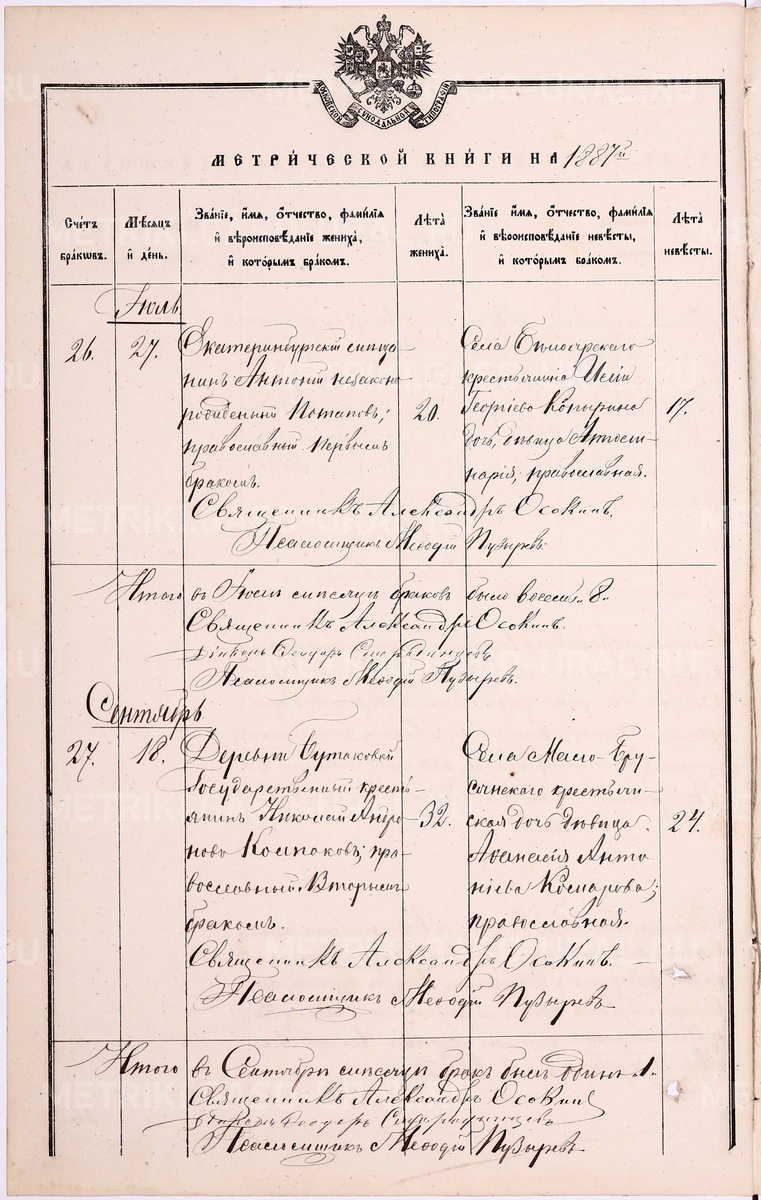 МОСКОВСКОЙ СѴНОДАЛЬНОЙ ТИПОГРАФІИ
МЕТРИ́ЧЕСКОЙ КНИ́ГИ НА 1887й
Сче́тъ бра́кωвъ.
Мѣ́сяцъ и҆ де́нь.
Зва́нїе, и҆́мѧ, ѻ҆́тчество, фами́лїѧ и҆ вѣроисповѣ́данїе жениха̀, и҆ кото́рымъ бра́комъ.
Лѣ́та̀ жениха̀.
Зва́нїе и҆́мѧ, ѻ҆́тчество, фами́лїѧ и҆ вѣроисповѣ́данїе невѣ́сты, и҆ кото́рымъ бра́комъ.
Лѣ́та̀ невѣ́сты.
Іюль
26.
27.
Екатеринбургскій мѣща-
нинъ Антоній незаконо
рожденный Потаповъ;
православный первымъ
бракомъ.
20.
Села Бѣлоярскаго
крестьянина
Георгіева Копырина
дочь, дѣвица
православная.
17.
Священникъ Александръ Осокинъ.
Псаломщикъ Меѳодій Пузыревъ.
Итого въ Іюлѣ мѣсяцѣ браковъ было восемь 8.
Священникъ Александръ Осокинъ.
Діаконъ Ѳеодоръ
Псаломщикъ Меѳодій Пузыревъ.
Сентябрь
27.
18.
Деревни Бутаковой
Государственный кресть-
янинъ Николай Андро
новъ Колпаковъ; пра-
вославный Вторымъ
бракомъ.
32.
Села Мало-Бру-
сянскаго крестьян-
ская дочь дѣвица
Аѳанасія Анто
ніева Комарова;
православная.
24.
Священникъ Александръ Осокинъ.
Псаломщикъ Меѳодій Пузыревъ
Итого въ Сентябрѣ мѣсяцѣ бракъ былъ одинъ 1.
Священникъ Александръ Осокинъ
Діаконъ Ѳеодоръ
Псаломщикъ Меѳодій Пузыревъ